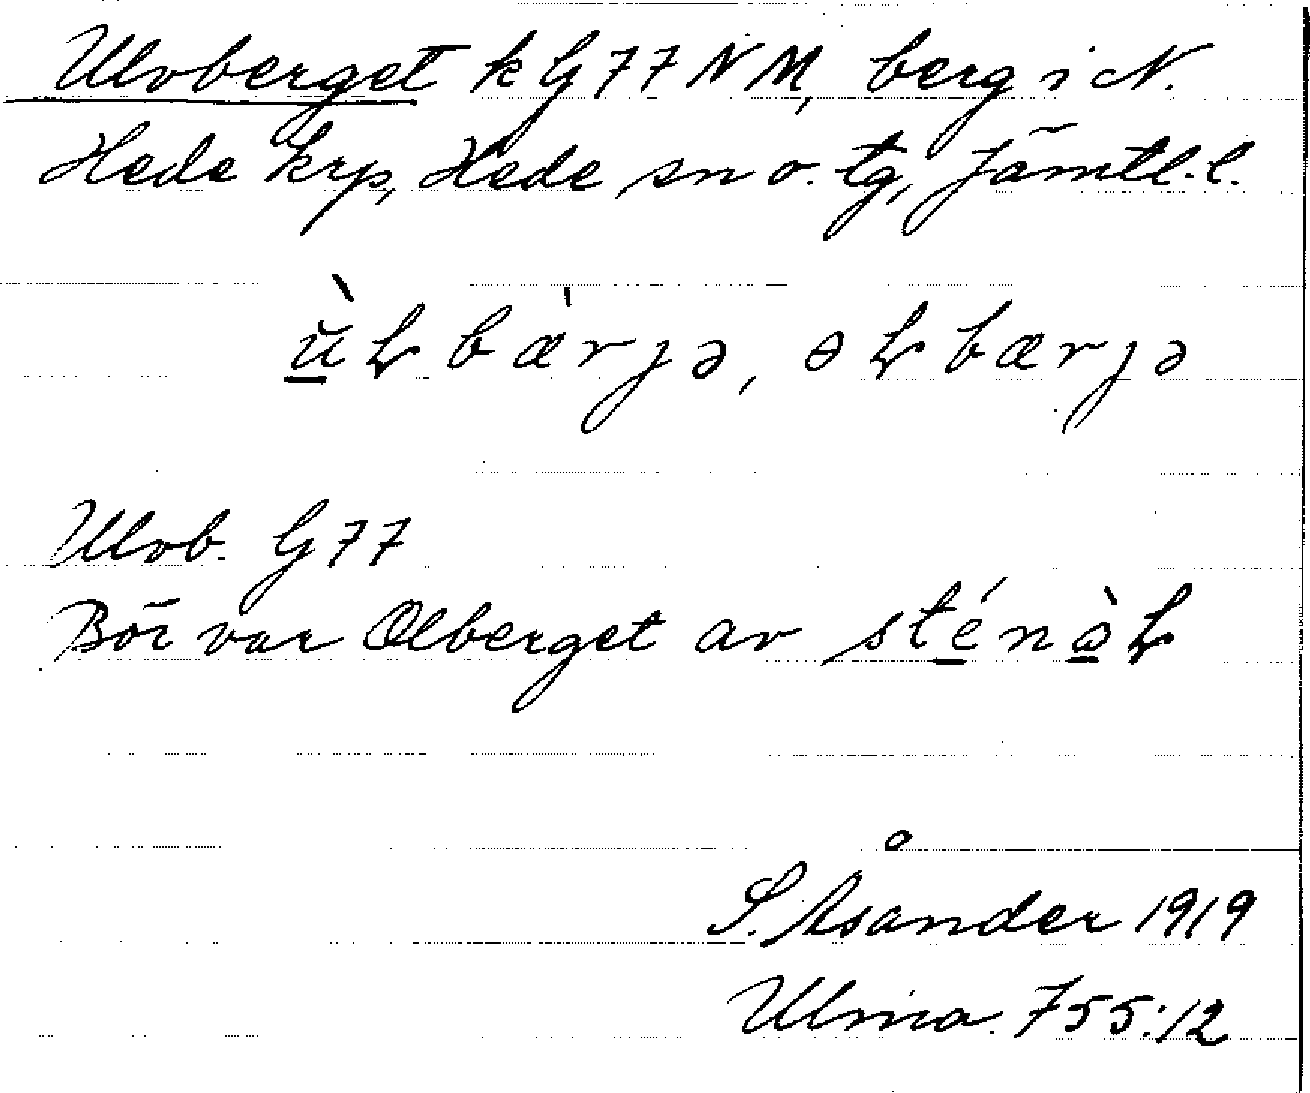 Ulvberget k G 77 N M, berg i N.
Hede krp, Hede sn o. tg, Jämtl. l.
ùł bæ̀rjə, əł bærjə
Ulvb. G 77
Bör vara Olberget av sténàł
S. Åsander 1919
Ulma. 755:12